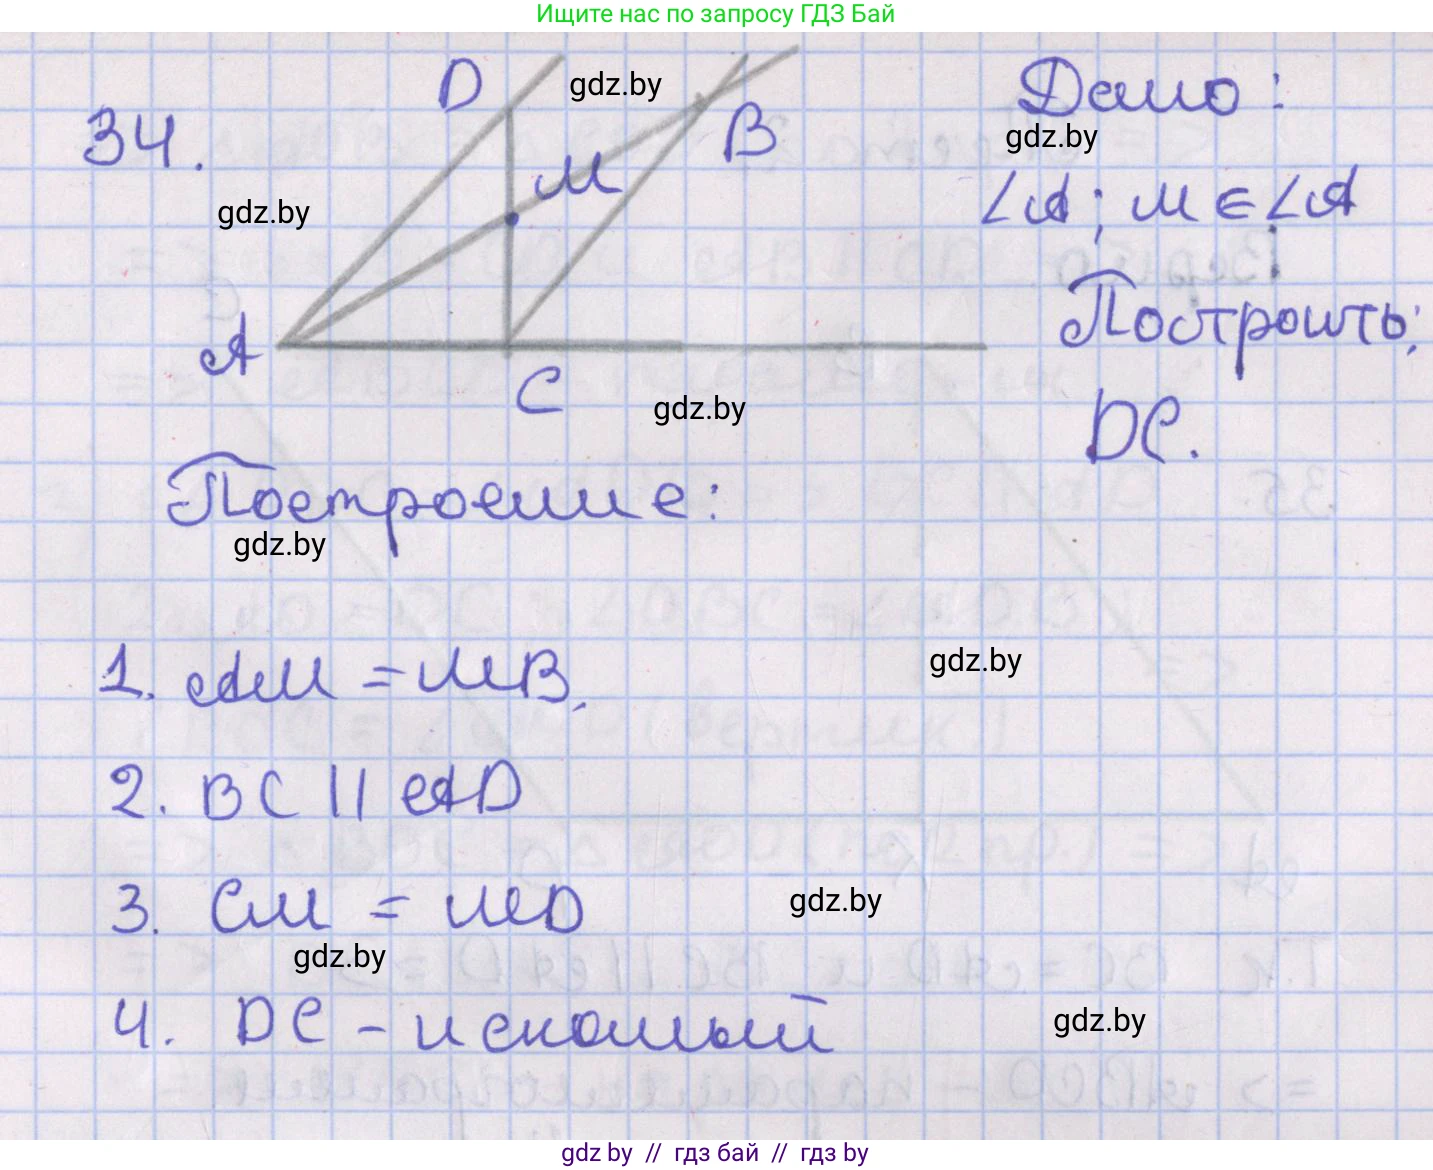 Ищите нас по запросу ГДЗ Бай
34.
D
M
B
A
C
Дано:
∠A; M ∈ ∠A
Построить:
DC.
Построение:
1. AM = MB,
2. BC || AD
3. CM = MD
4. DC - искомый
gdz.by
gdz.by
gdz.by
gdz.by
gdz.by
gdz.by
gdz.by
gdz.by
gdz.by
gdz.by // гдз бай // гдз by